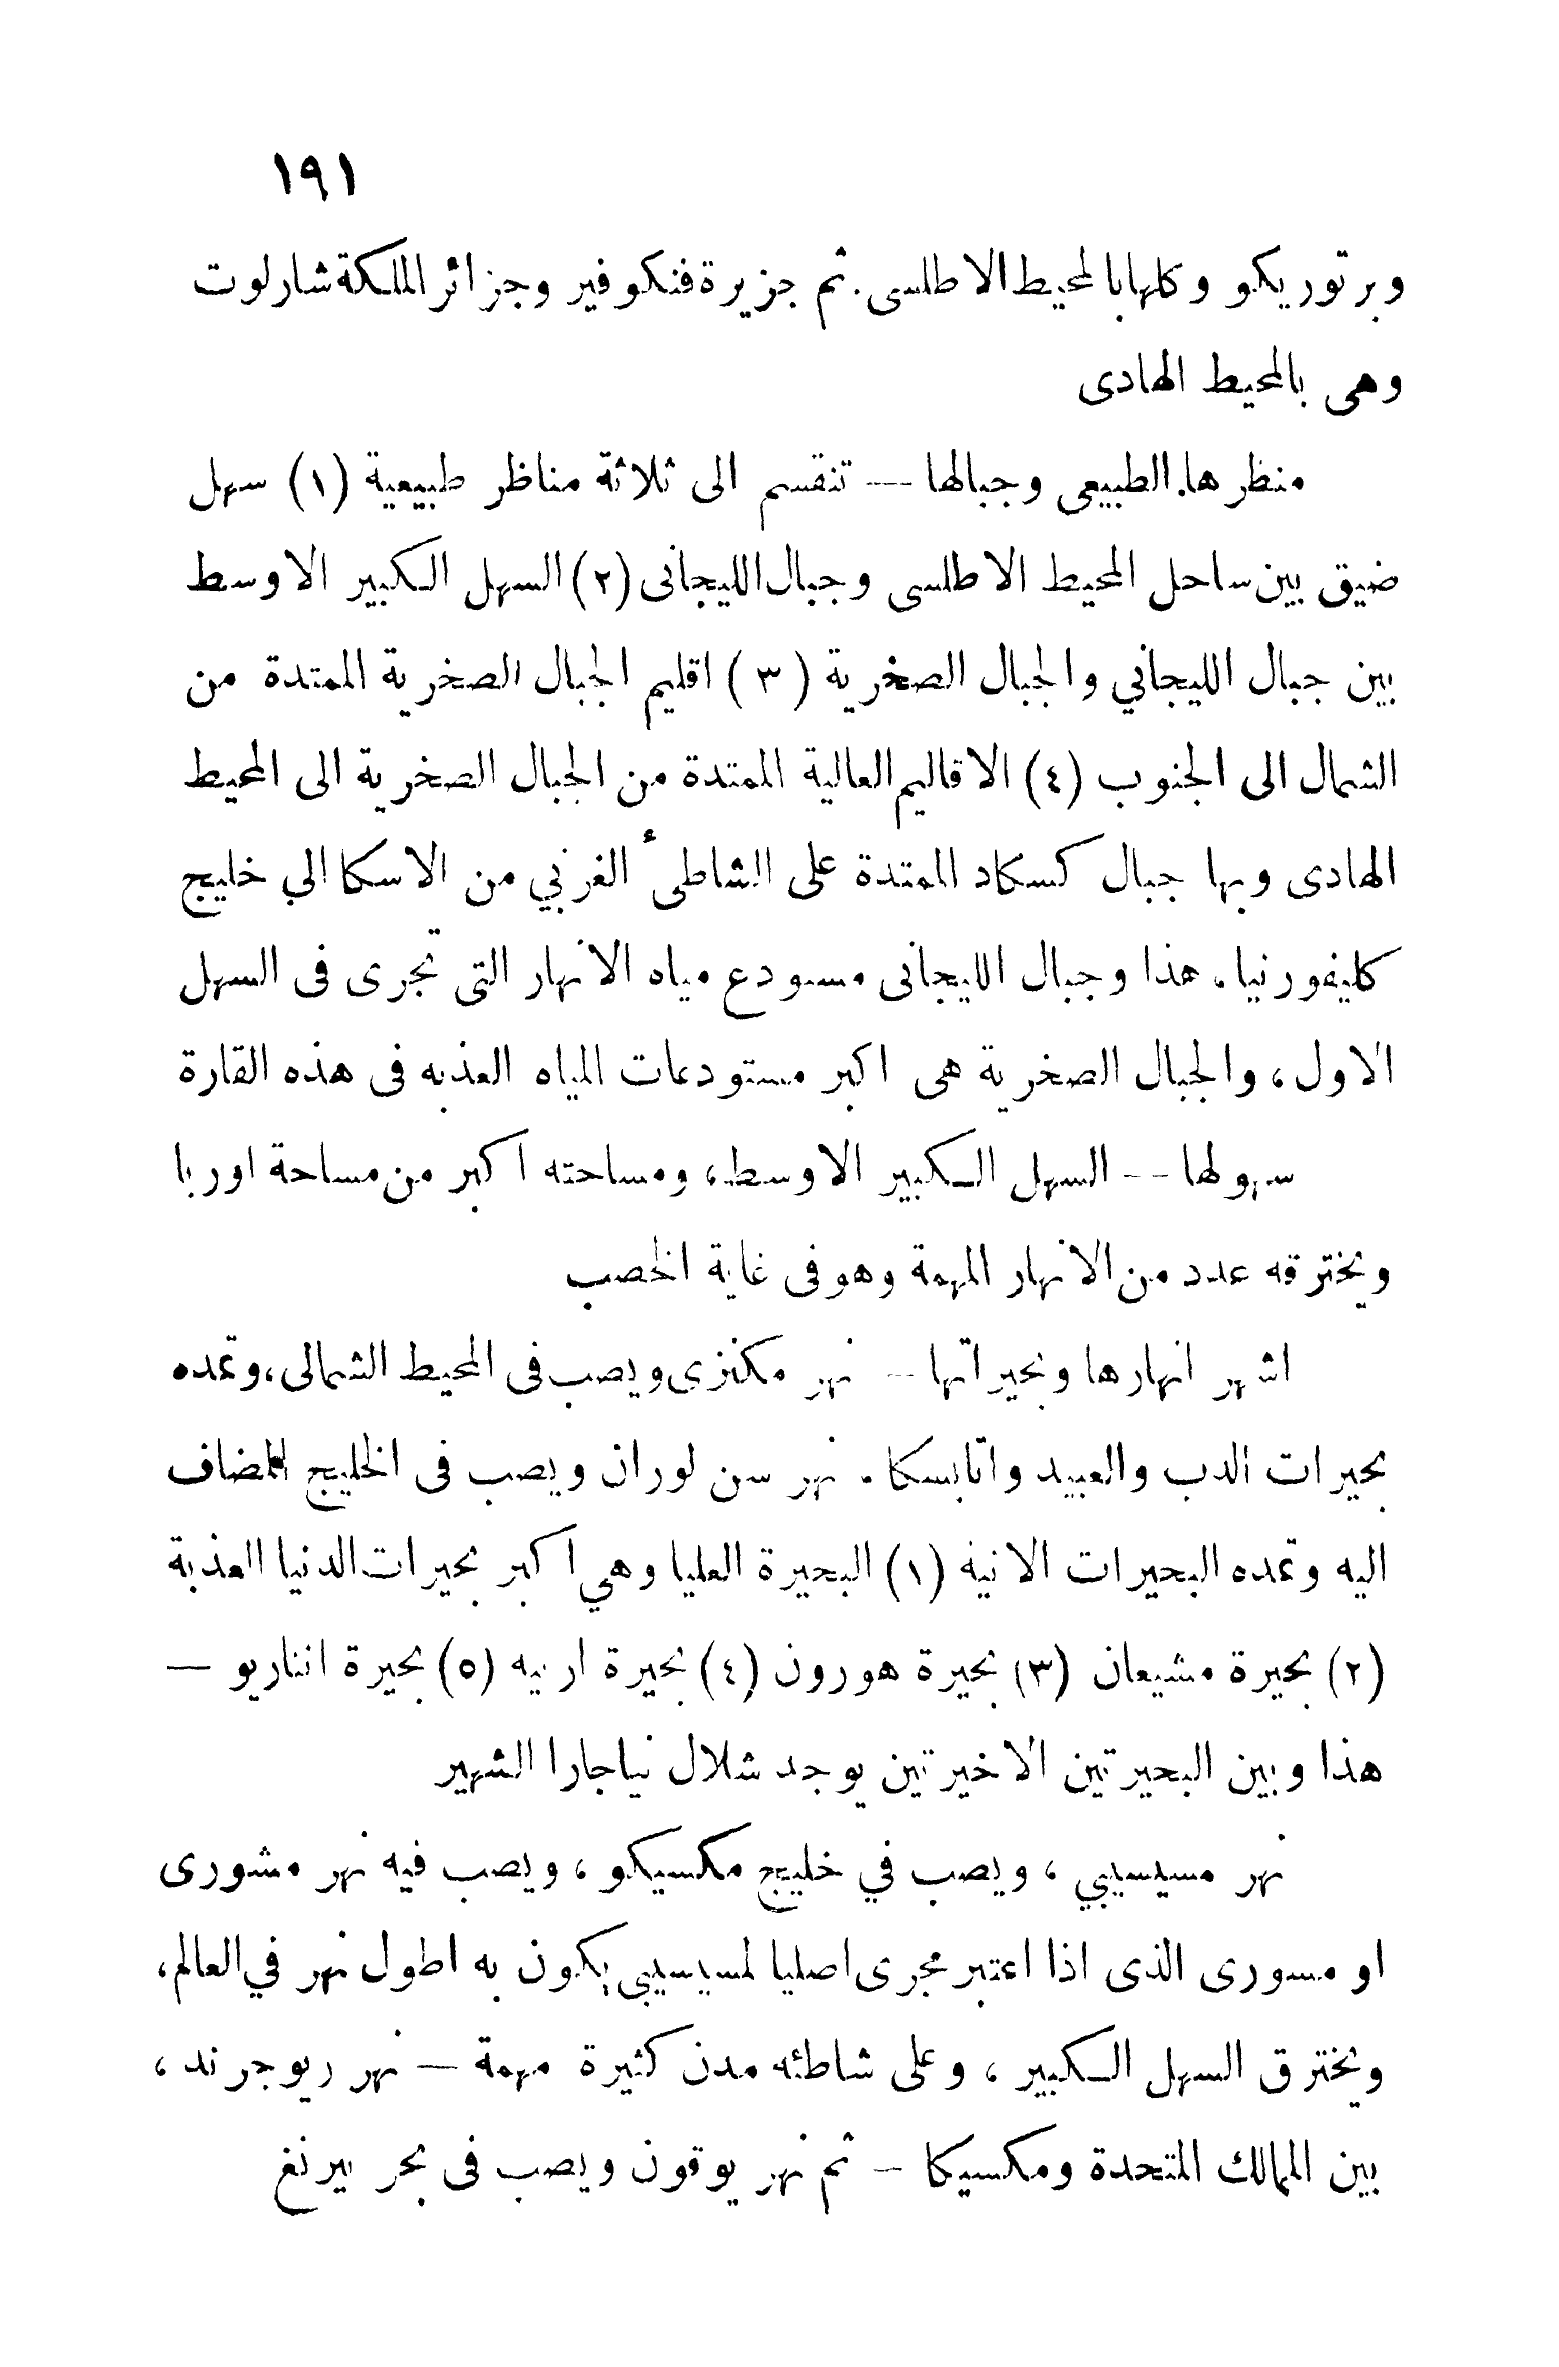 ١٩١
وبرتوريكو وكلها بالمحيط الاطلسى. ثم جزيرة فنكوفير وجزائر الملكة شارلوت
وهى بالمحيط الهادى
منظرها الطبيعى وجبالها — تنقسم الى ثلاثة مناظر طبيعية (١) سهل
ضيق بين ساحل المحيط الاطلسى وجبال الليجانى (٢) السهل الكبير الاوسط
بين جبال الليجاني والجبال الصخرية (٣) اقليم الجبال الصخرية الممتدة من
الشمال الى الجنوب (٤) الاقاليم العالية الممتدة من الجبال الصخرية الى المحيط
الهادى وبها جبال كسكاد الممتدة على الشاطىء الغربي من الاسكا الي خليج
كليفورنيا، هذا وجبال الليجانى مستودع مياه الانهار التى تجرى فى السهل
الاول، والجبال الصخرية هى اكبر مستودعات المياه العذبه فى هذه القارة
سهولها -- السهل الكبير الاوسط، ومساحته اكبر من مساحة اوربا
ويخترقه عدد من الانهار المهمة وهو فى غاية الخصب
اشهر انهارها وبحيراتها — نهر مكنزى ويصب فى المحيط الشمالى، وتمده
بحيرات الدب والعبيد واتابسكا. نهر سن لوران ويصب فى الخليج المضاف
اليه وتمده البحيرات الاتيه (١) البحيرة العليا وهي اكبر بحيرات الدنيا العذبة
(٢) بحيرة مشيعان (٣) بحيرة هورون (٤) بحيرة اريه (٥) بحيرة انتاريو —
هذا وبين البحيرتين الاخيرتين يوجد شلال نياجارا الشهير
نهر مسيسيبي، ويصب في خليج مكسيكو، ويصب فيه نهر مشورى
او مسورى الذى اذا اعتبر مجرى اصليا لمسيسيبى يكون به اطول نهر في العالم،
ويخترق السهل الكبير، وعلى شاطئه مدن كثيرة مهمة — نهر ريوجرند،
بين الممالك المتحدة ومكسيكا — ثم نهر يوقون ويصب فى بحر بيرنغ